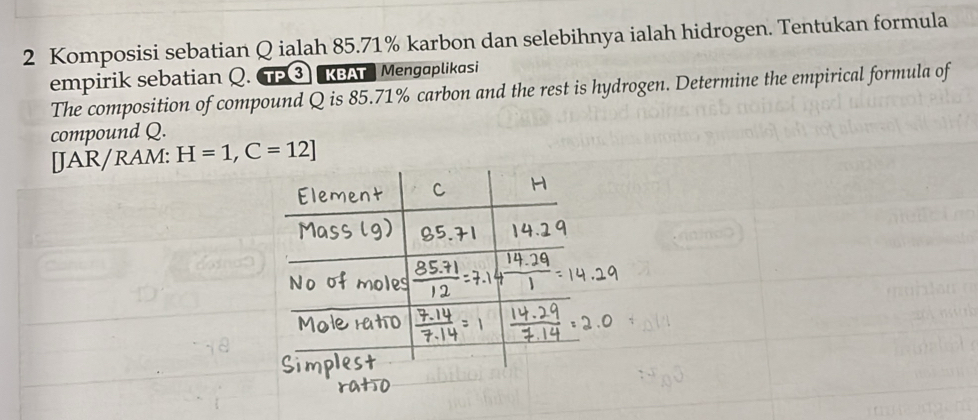 2 Komposisi sebatian Q ialah 85.71% karbon dan selebihnya ialah hidrogen. Tentukan formula
empirik sebatian Q. TP 3 KBAT Mengaplikasi
The composition of compound Q is 85.71% carbon and the rest is hydrogen. Determine the empirical formula of
compound Q.
[JAR/RAM: H = 1, C = 12]
Element C H
Mass (g) 85.71 14.29
No of moles 85.71/12 = 7.14 14.29/1 = 14.29
Mole ratio 7.14/7.14 = 1 14.29/7.14 = 2.0
Simplest
ratio